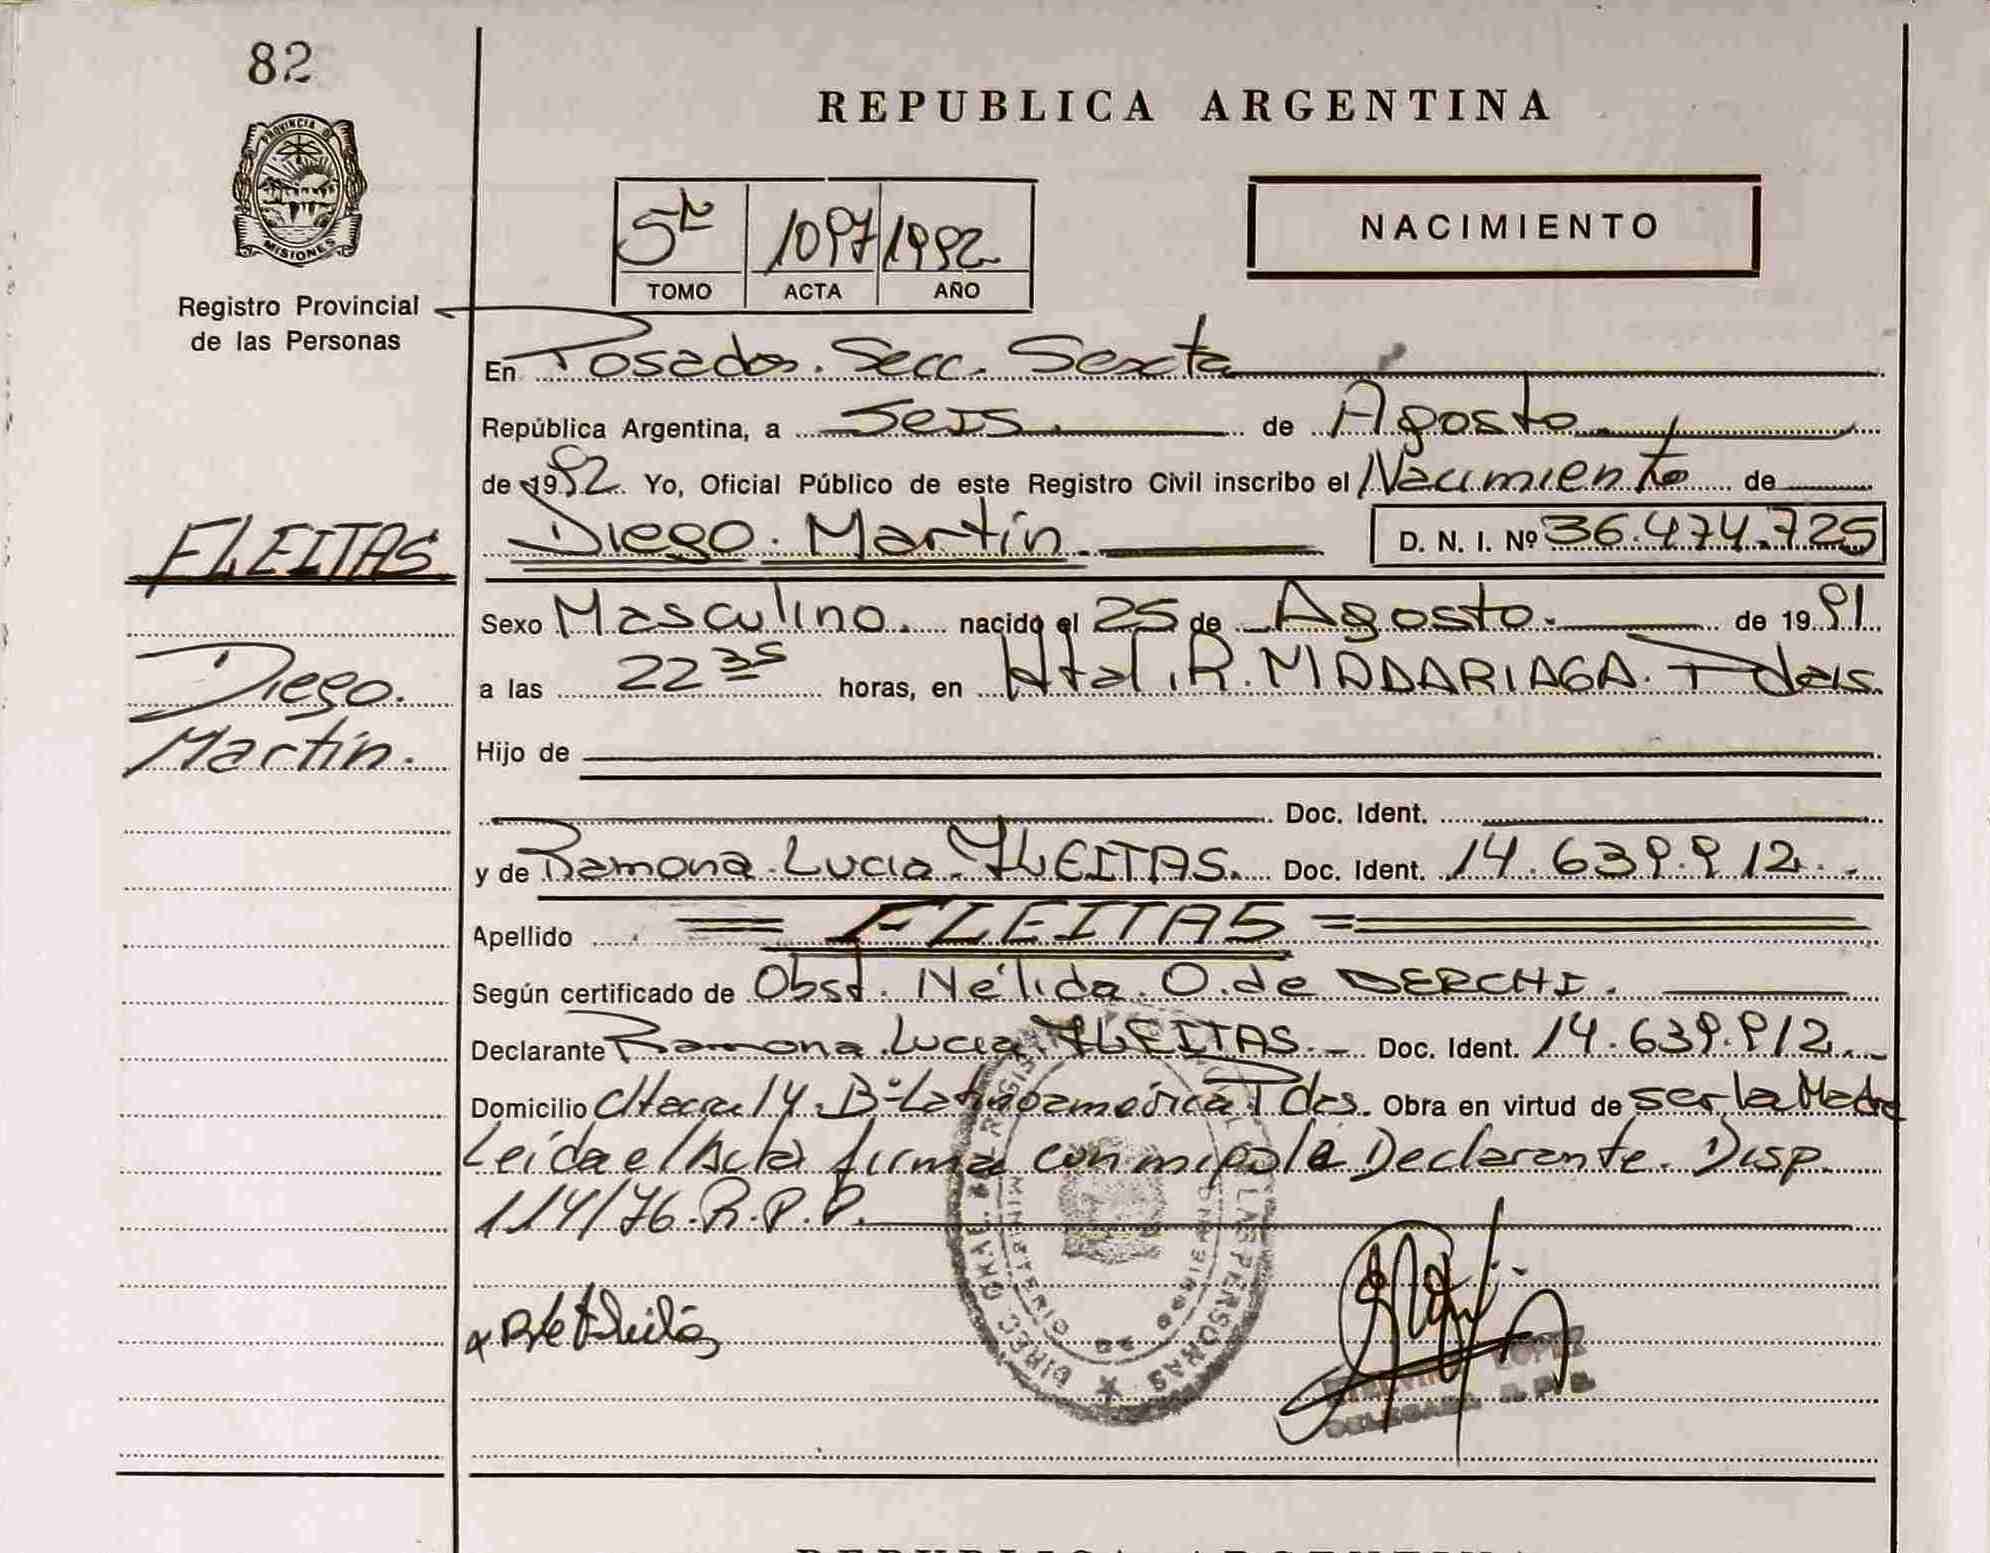 82
PROVINCIA DE
MISIONES
Registro Provincial
de las Personas
FLEITAS
Diego.
Martín.
REPUBLICA ARGENTINA
5º 1097 1992
TOMO ACTA AÑO
NACIMIENTO
En Posadas. Secc. Sexta
República Argentina, a Seis. de Agosto.
de 1992. Yo, Oficial Público de este Registro Civil inscribo el Nacimiento de
Diego. Martín. D. N. I. Nº 36.474.725
Sexo Masculino. nacido el 25 de Agosto. de 1991.
a las 22 35 horas, en Htal. R. MADARIAGA. Pdas.
Hijo de
Doc. Ident.
y de Ramona. Lucia. FLEITAS. Doc. Ident. 14.639.912.
Apellido = FLEITAS =
Según certificado de Obst. Nélida. O. de DERCHI.
Declarante Ramona. Lucia. FLEITAS. Doc. Ident. 14.639.912.
Domicilio 14. Bº Latinoamérica Pdas. Obra en virtud de ser la Madre
Leída el Acta firma conmigo la Declarante. Disp.
114/76. R.P.P.
DIREC. GRAL. LAS PERSONAS
MINISTERIO DE GOBIERNO
LOPEZ
DELEGADA R. P. P.
REPUBLICA ARGENTINA